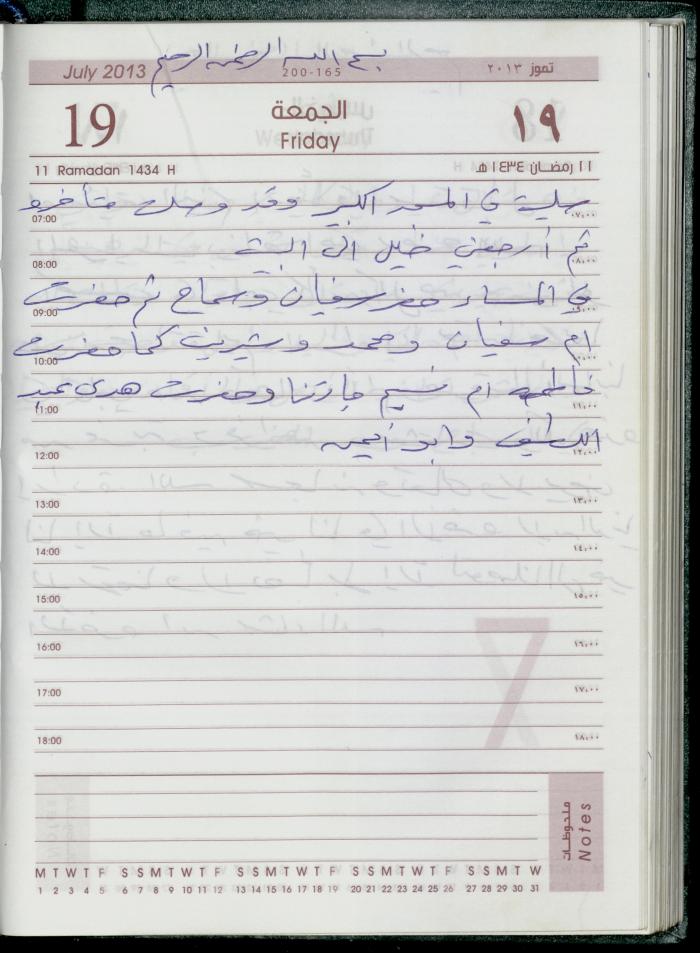 بسم الله الرحمن الرحيم
July 2013 200-165 تموز ٢٠١٣
19 الجمعة ١٩
Friday
11 Ramadan 1434 H ١١ رمضان ١٤٣٤ هـ
صليت في المسجد الكبير وقد وصلت متأخرو
07:00 ٠٧:٠٠
ثم أرجعني خليل الى البيت
08:00 ٠٨:٠٠
في المساء حضر سفيان وسماح ثم حضرت
09:00 ٠٩:٠٠
ام سفيان ومحمد وشيرين كما حضرت
10:00 ١٠:٠٠
فاطمه ام نسيم جارتنا وحضرت هدى عبد
11:00 ١١:٠٠
اللطيف وابو ايمن
12:00 ١٢:٠٠
13:00 ١٣:٠٠
14:00 ١٤:٠٠
15:00 ١٥:٠٠
16:00 ١٦:٠٠
17:00 ١٧:٠٠
18:00 ١٨:٠٠
7
ملحوظات
Notes
M T W T F S S M T W T F S S M T W T F S S M T W T F S S M T W
1 2 3 4 5 6 7 8 9 10 11 12 13 14 15 16 17 18 19 20 21 22 23 24 25 26 27 28 29 30 31